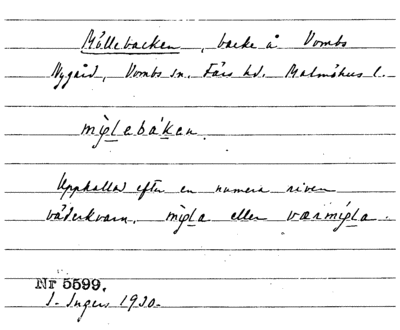 Möllebacken, backe å Vombs
Nygård, Vombs sn. Färs hd. Malmöhus l.
miglebáken.
Uppkallad efter en numera riven
väderkvarn. migla eller værmigla.
Nr 5599.
I. Ingers 1930.